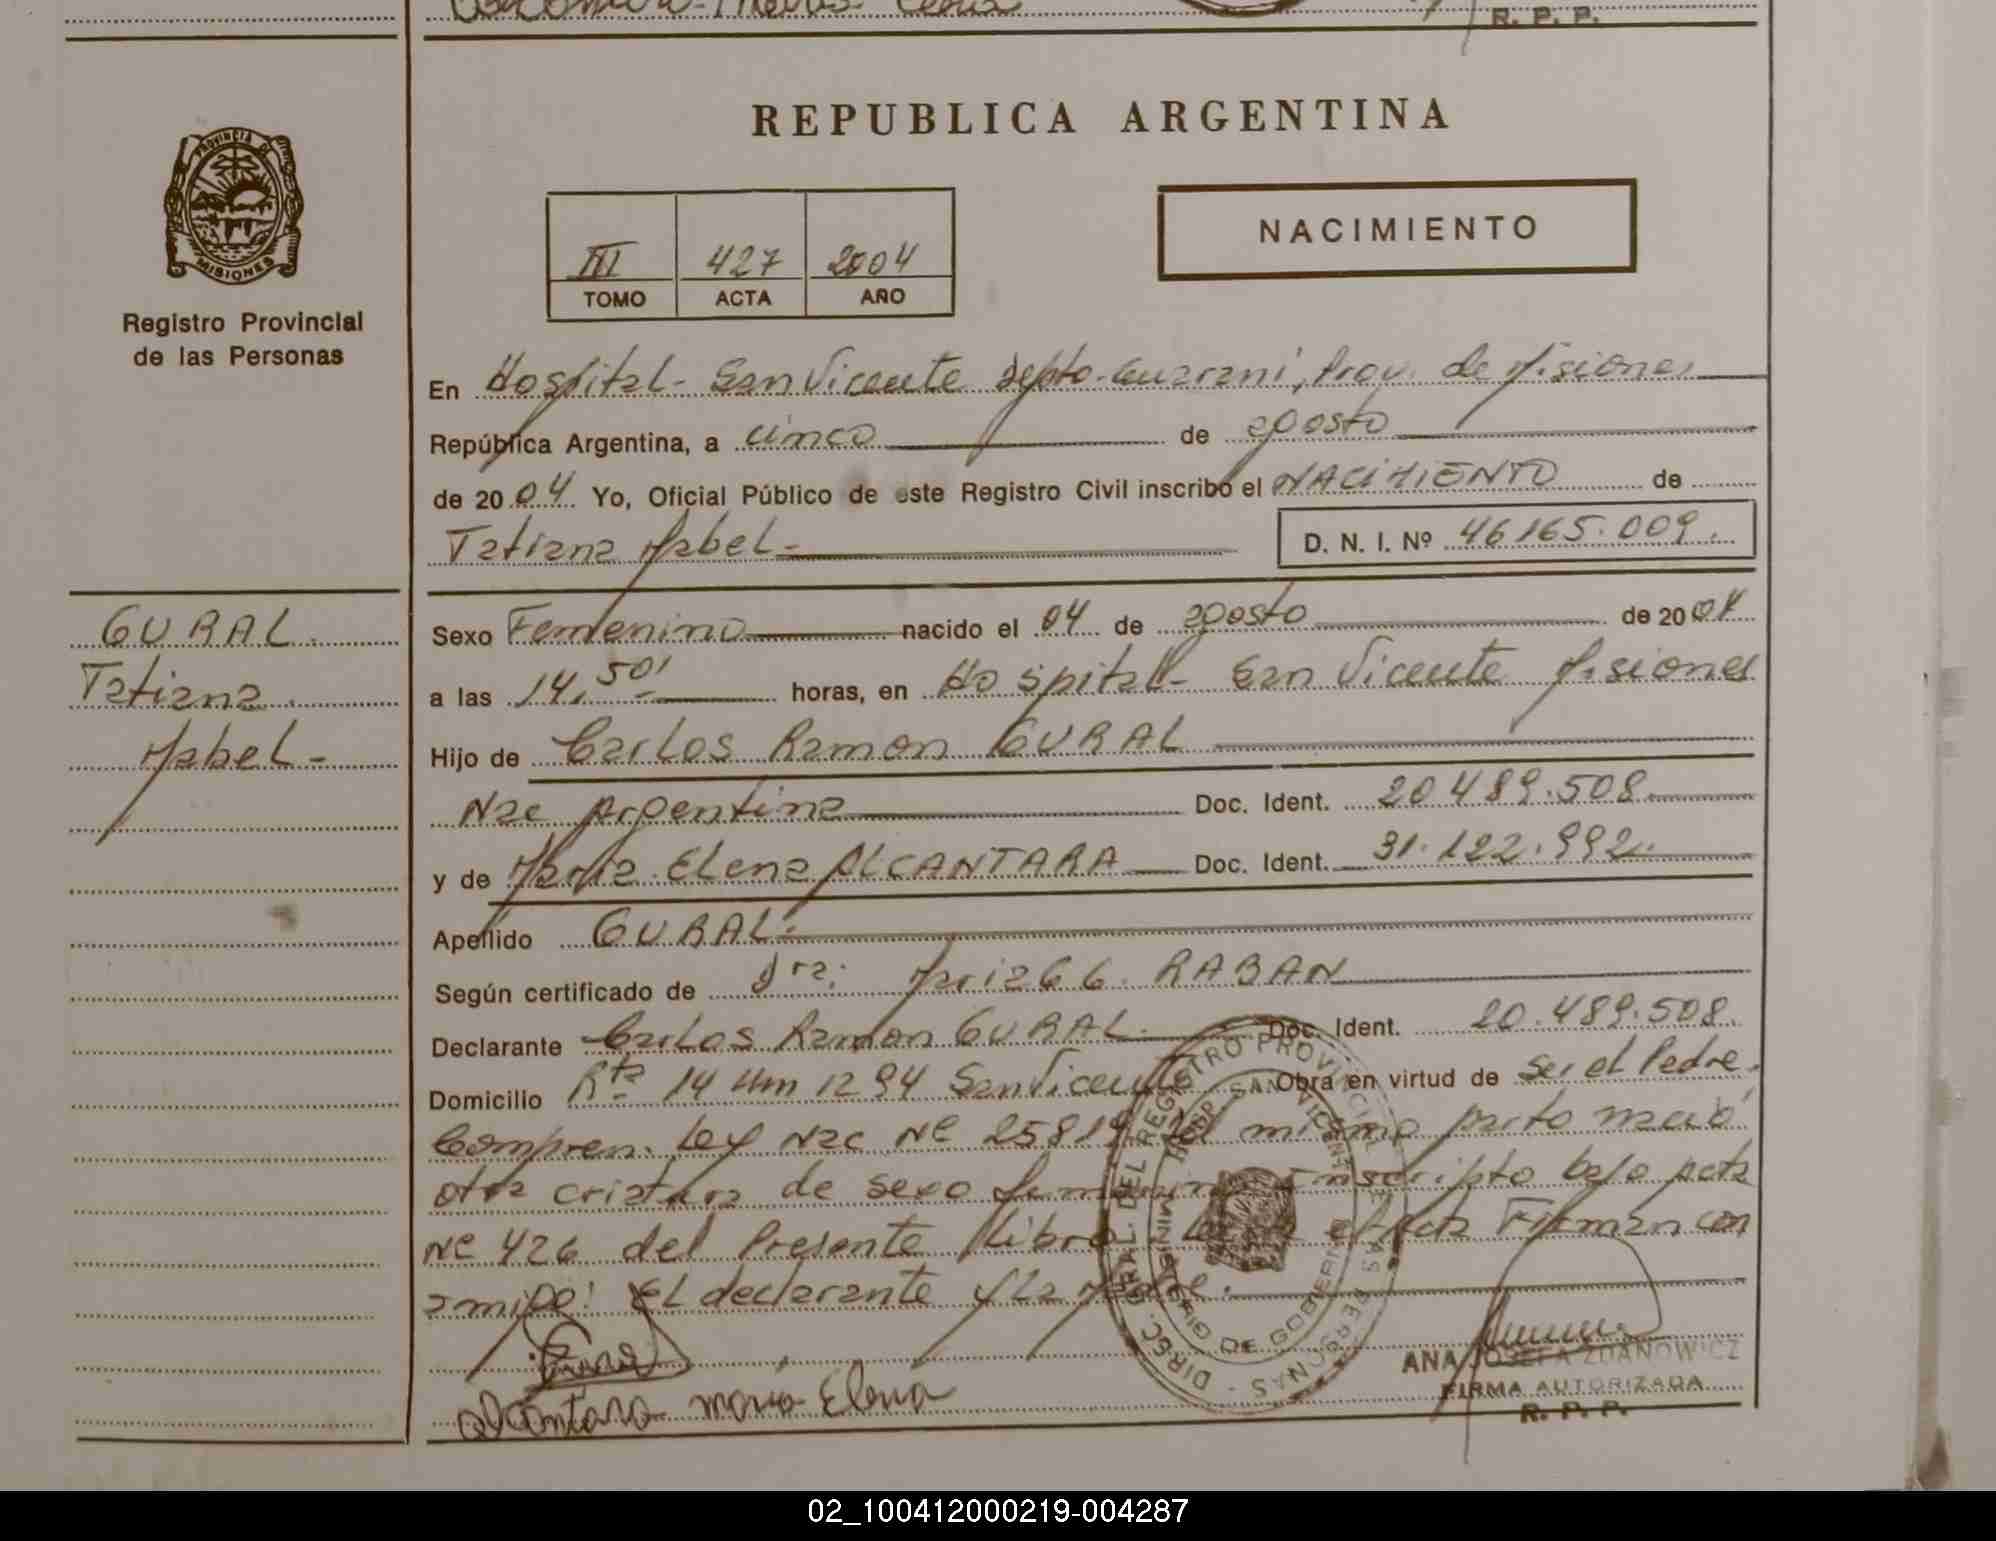 R. P. P.
PROVINCIA DE
MISIONES
Registro Provincial
de las Personas
REPUBLICA ARGENTINA
NACIMIENTO
III 427 2004
TOMO ACTA AÑO
En Hospital - San Vicente Depto - Guarani, Prov. de Misiones
República Argentina, a cinco de agosto
de 2004 Yo, Oficial Público de este Registro Civil inscribo el NACIMIENTO de
Tatiana Mabel - D. N. I. Nº 46165.009.
GURAL.
Tatiana
Mabel -
Sexo Femenino nacido el 04 de agosto de 2004
a las 14,50' horas, en Hospital - San Vicente Misiones
Hijo de Carlos Ramon GURAL
Nac Argentina Doc. Ident. 20489.508
y de Maria Elena ALCANTARA Doc. Ident. 31.122.992.
Apellido GURAL.
Según certificado de Dra: Maria G. RABAN
Declarante Carlos Ramon GURAL. Doc. Ident. 20.489.508.
Domicilio Rta 14 Km 1294 San Vicente Obra en virtud de Ser el Padre.
Compren. Ley Nac Nº 25819 del mismo parto nació
otra criatura de sexo femenino inscripto bajo acta
Nº 426 del Presente Libro el Acta Firman con
amigo: El declarante y La Madre.
DIREC. GRAL. DEL REGISTRO PROVINCIAL DE LAS PERSONAS -
HOSP. SAN VICENTE
MINISTERIO DE GOBIERNO
Alcantara maria Elena
ANA JOSEFA ZDANOWICZ
FIRMA AUTORIZADA
R. P. P.
02_100412000219-004287